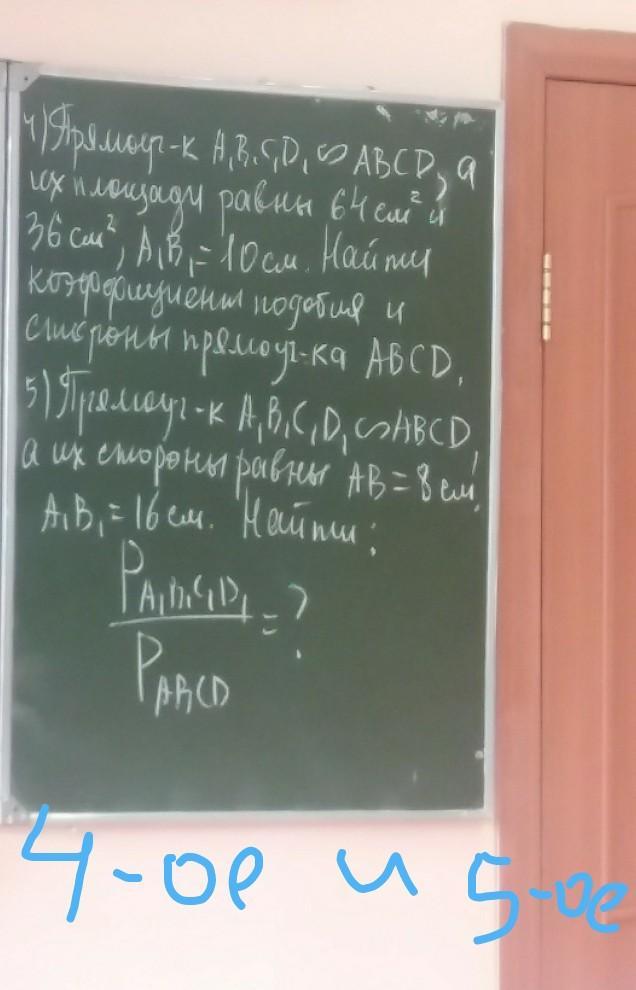 4) Прямоуг-к A₁B₁C₁D₁ ∽ ABCD, а
их площади равны 64 см² и
36 см², A₁B₁ = 10 см. Найти
коэффициент подобия и
стороны прямоуг-ка ABCD.
5) Прямоуг-к A₁B₁C₁D₁ ∽ ABCD,
а их стороны равны AB = 8 см,
A₁B₁ = 16 см. Найти:
P A₁B₁C₁D₁ / P ABCD = ?
4-ое и 5-ое